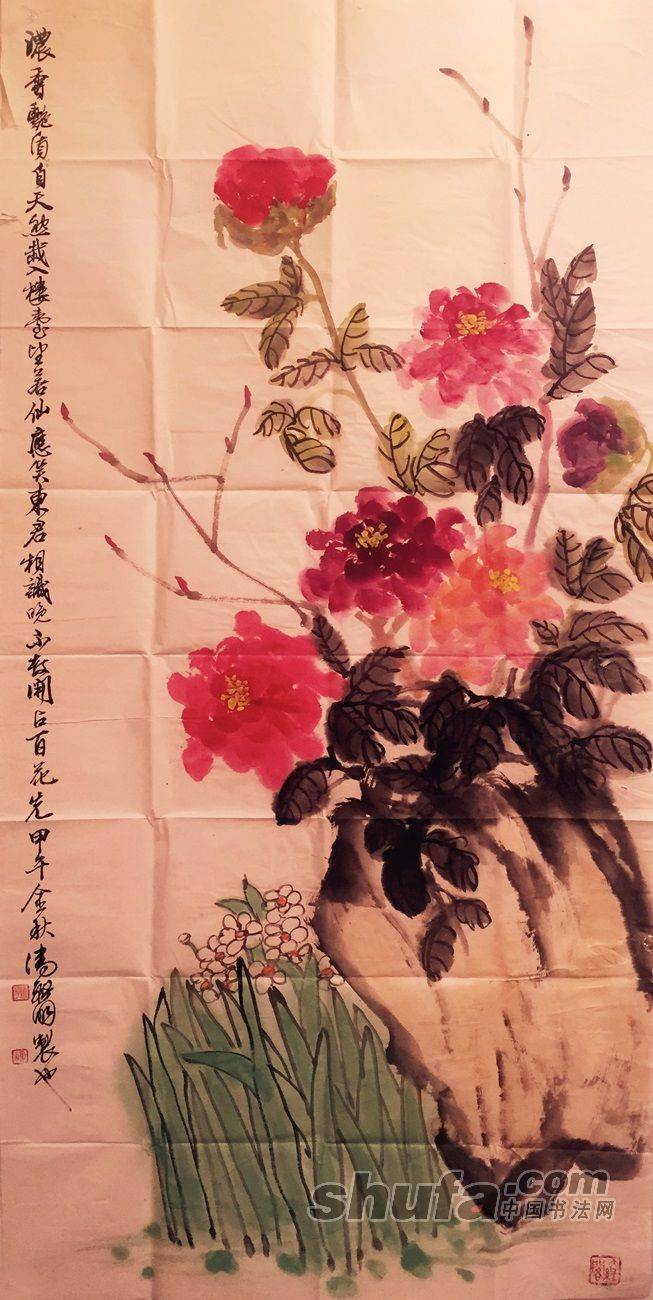 濃香艷質自天然栽入樓臺望若仙應笑東君相識晚不教開占百花先甲午金秋 製
shufa.com
中国书法网